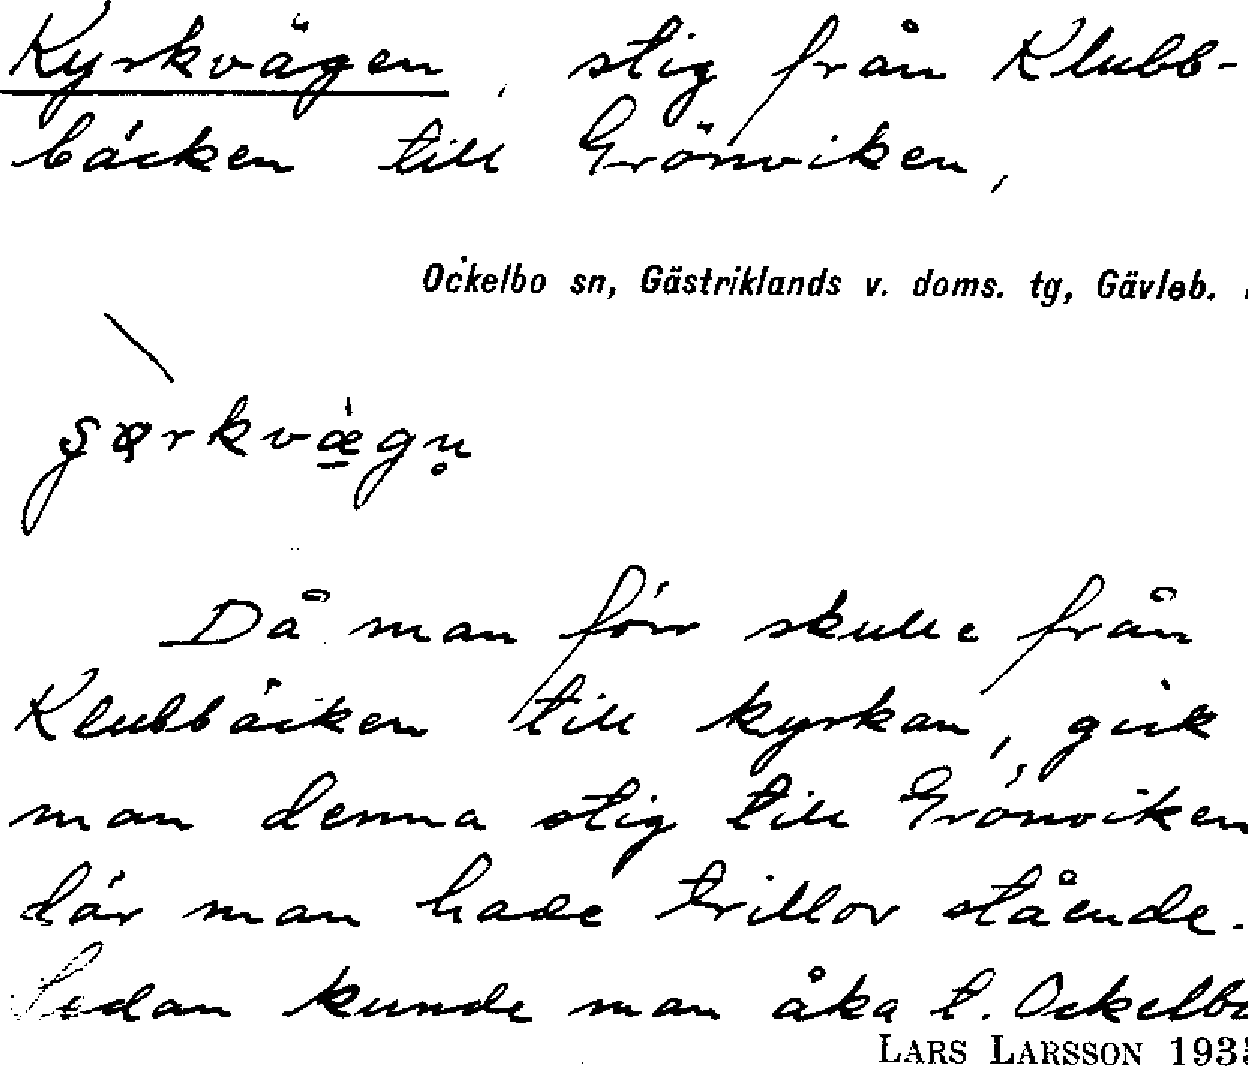 Kyrkvägen, stig från Klubb-
bäcken till Grönviken,
Ockelbo sn, Gästriklands v. doms. tg, Gävleb.
Då man förr skulle från
Klubbäcken till kyrkan, gick
man denna stig till Grönviken
där man hade trillor stående.
Sedan kunde man åka t. Ockelbo
LARS LARSSON 193